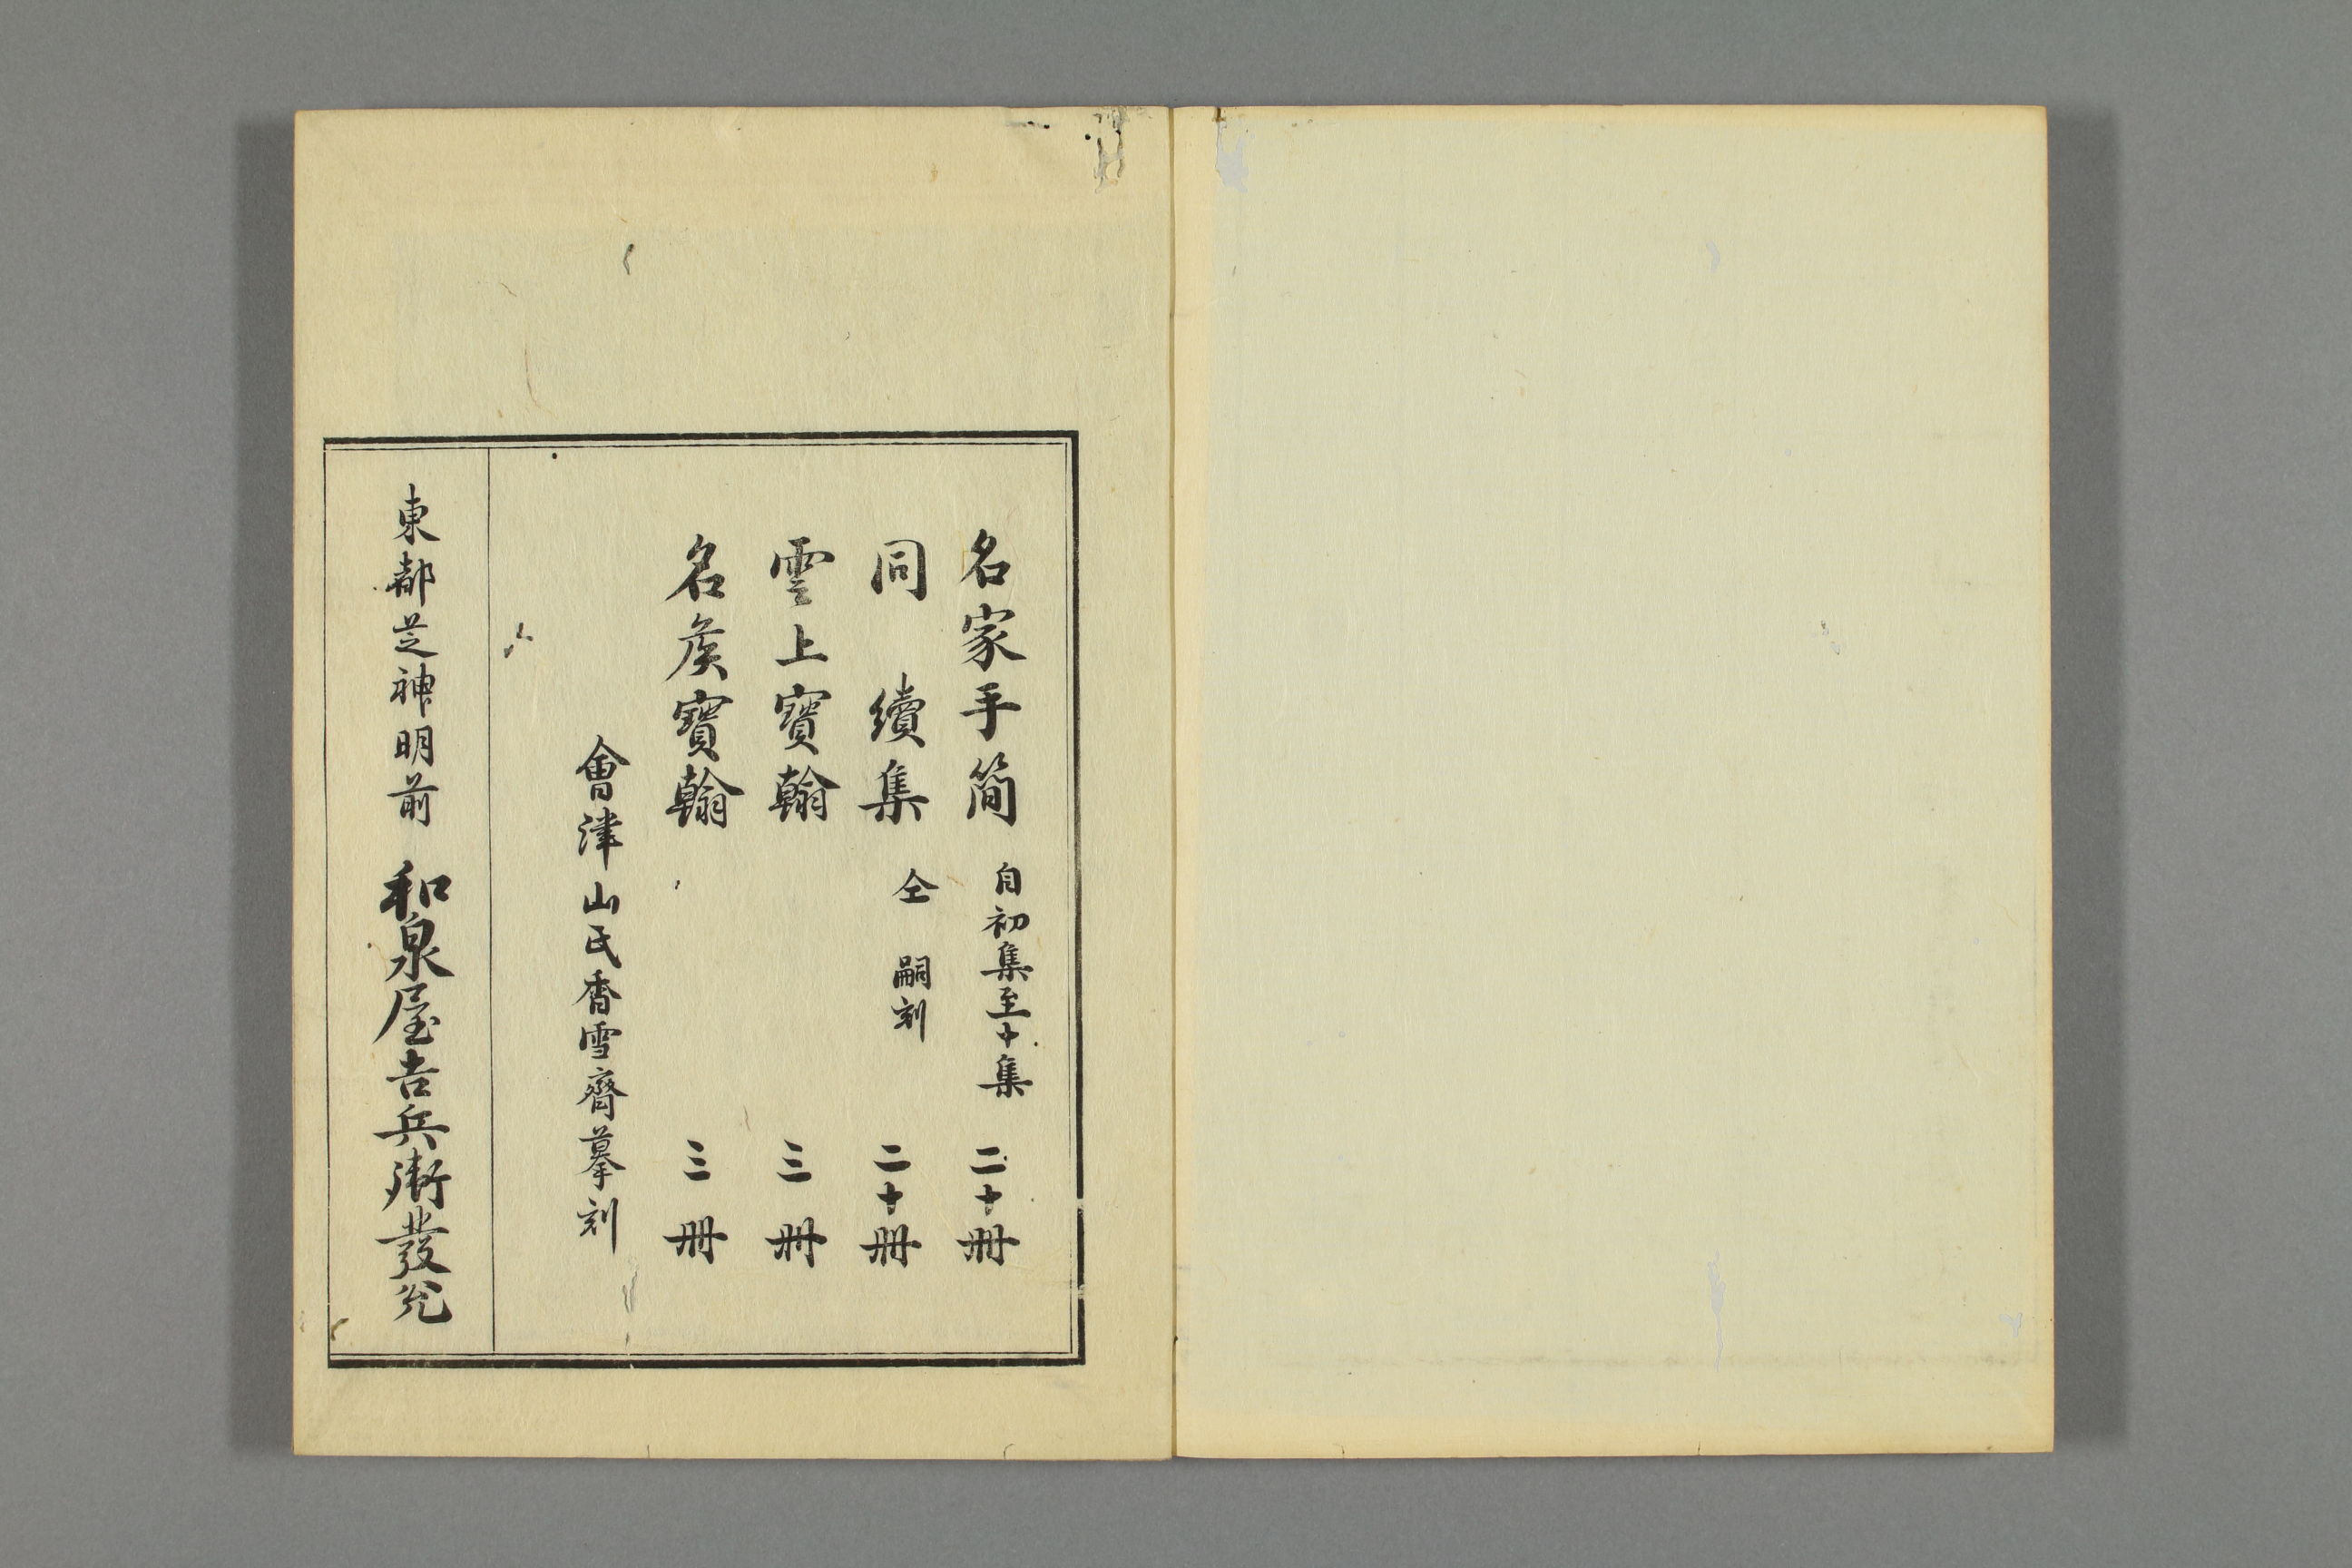 名家手簡 自初集至十集 二十冊
同 續集 仝 嗣刻 二十冊
雲上寶翰 三冊
名矦寶翰 三冊
會津山氏香雪齋摹刻
東都芝神明前 和泉屋吉兵衛發兌